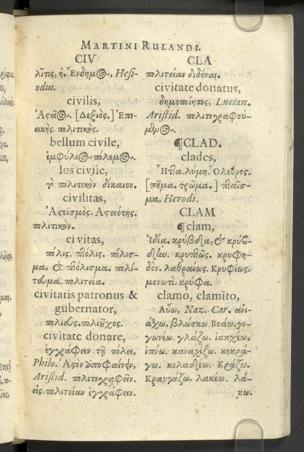 MARTINI RULANDI.
CIV
λῖτις, ἡ. Ἔνδημος, Hesi-
odus.
civilis,
Ἀςεῖος. [Δεξιὸς.] Ἐπι-
εικὴς πολιτικός.
bellum civile,
ἐμφύλιος πόλεμος.
Ius civile,
τὸ πολιτικὸν δίκαιον.
civilitas,
Ἀςεισμὸς. Ἀςειότης.
πολιτικόν.
civitas,
πόλις. πτόλις. πόλισ-
μα, & πτόλισμα. πολί-
τευμα. πολιτεία.
civitatis patronus &
gubernator,
πολιοῦχος.
civitate donare,
ἐγγράφειν τῇ πόλει,
Philo. Ἀςὸν
Aristid. πολιτογραφεῖν.
εἰς πολιτείαν ἐγγράφειν.
CLA
πολιτείαν διδόναι.
civitate donatus,
δημοποίητος, Lucian.
Aristid. πολιτογραφού-
μενος.
¶CLAD.
clades,
Ἧττα. λύμη. Ὄλεθρος.
[πῆμα. τρῶμα.] πταῖσ-
μα, Herodi.
CLAM
¶clam,
ἰδία. κρύβδα, & κρύβ-
δην. κρυπτῶς. κρυφη-
δόν. λαθραίως. Κρυφίως.
κρύφα.
clamo, clamito,
Αὔω, Naz. Car. ἀνι-
άχω. βλώσκω Βοάω. γε-
γωνέω. γλάζω. ἰακχέω,
κεκρά-
γω. κελαδέω. Κράζω.
Κραυγάζω. λακέω. λά-
κω.